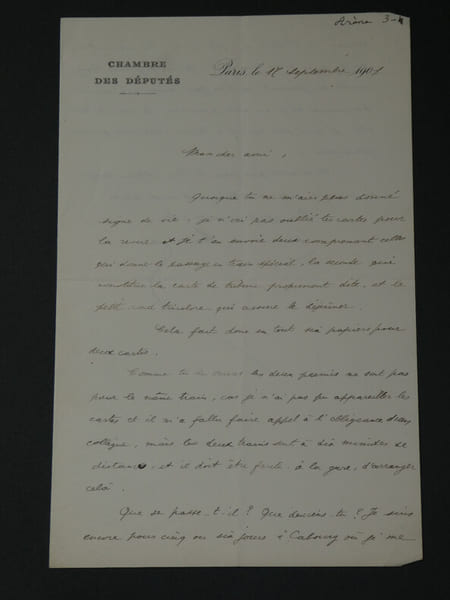 3-4
CHAMBRE
DES DÉPUTÉS
Paris, le 18 septembre 1901
Mon cher ami,
Quoique tu ne m'aies pas donné
signe de vie, je n'ai pas oublié tes cartes pour
la revue et je t'en envoie deux comprenant celle
qui donne le passage en train spécial, la seconde qui
constitue la carte de tribune proprement dite, et le
petit tricolore qui assure le déjeuner.
Cela fait donc en tout six papiers pour
deux cartes.
Comme tu le verras les deux permis ne sont pas
pour le même train, car je n'ai pas pu appareiller les
cartes et il m'a fallu faire appel à l'obligeance d'un
collègue, mais les deux trains sont à six minutes de
distance, et il doit être facile, à la gare, d'arranger
cela.
Que se passe-t-il? Que deviens-tu? Je suis
encore pour cinq ou six jours à Cabourg où je me